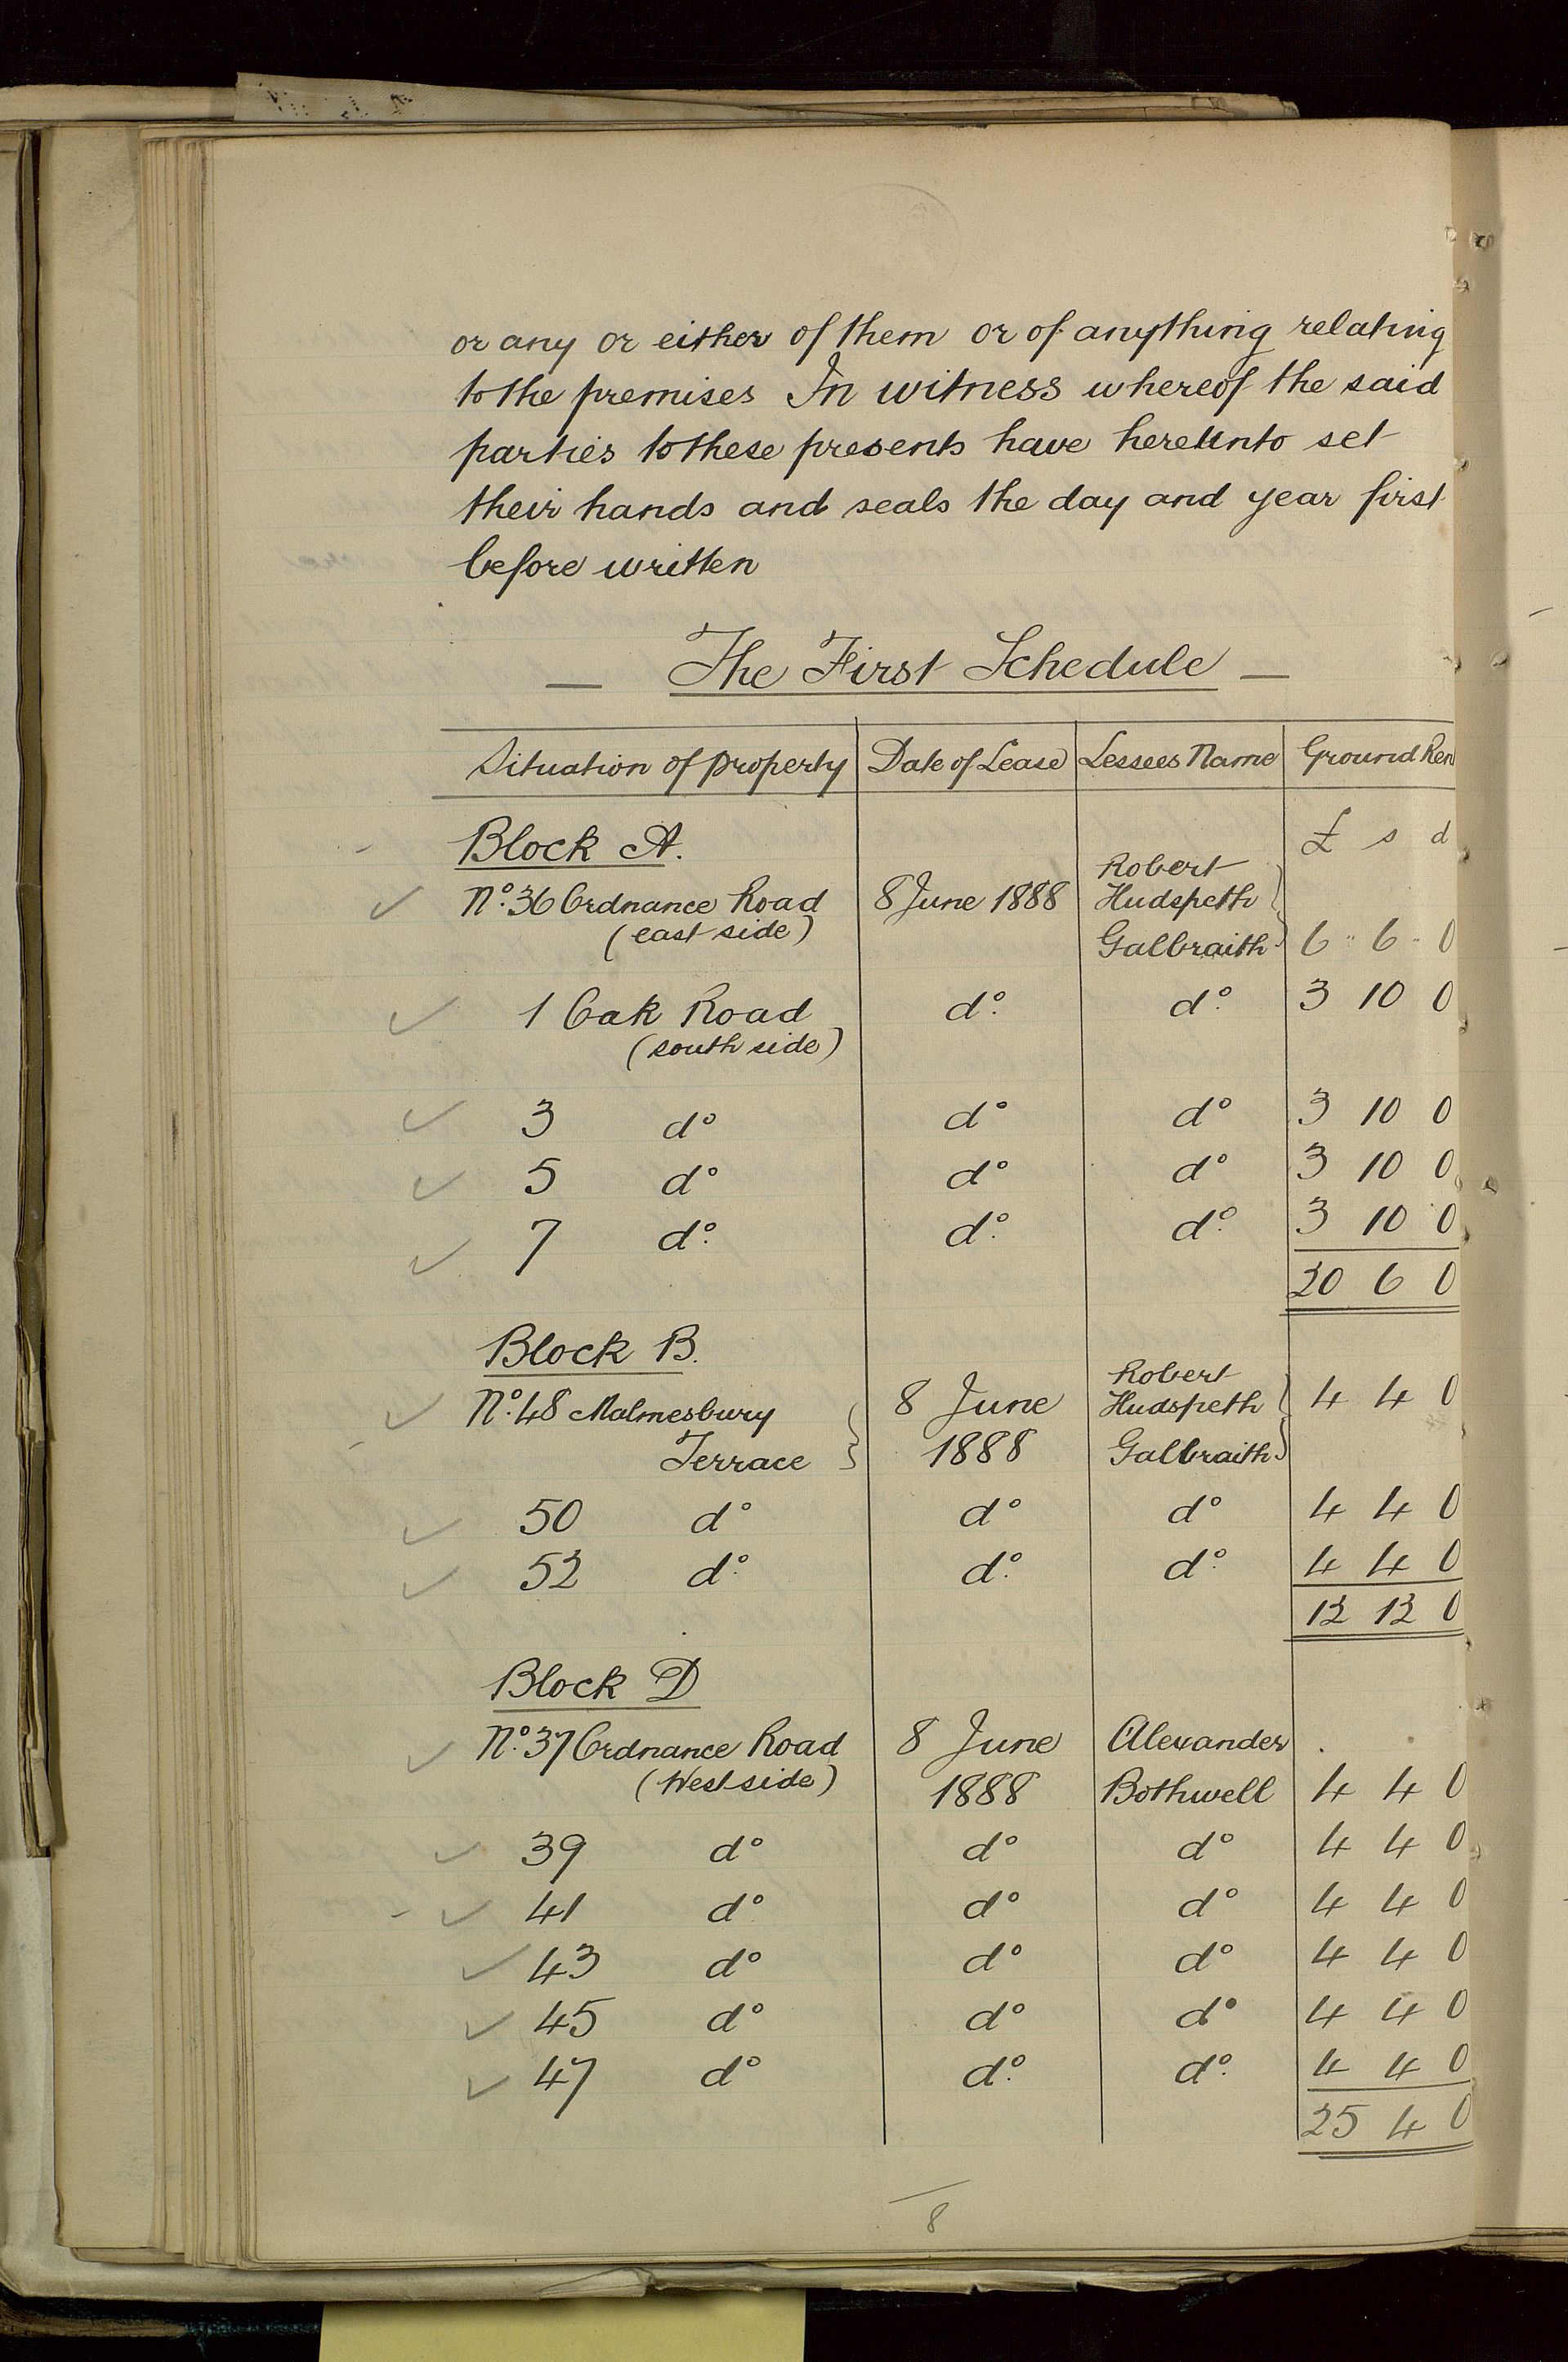 or any or either of them or of anything relating
to the premises In witness whereof the said
parties to these presents have hereunto set
their hands and seals the day and year first
before written
— The First Schedule —
Situation of property Date of Lease Lessees Name Ground Ren
£ s d
Block A.
Nº. 36 Ordnance Road 8 June 1888 Robert Hudspeth
(east side) Galbraith 6 " 6 " 0
1 Oak Road dº. dº. 3 10 0
(south side)
3 dº dº dº 3 10 0
5 dº dº dº 3 10 0
7 dº. dº. dº. 3 10 0
20 6 0
Block B.
Nº. 48 Malmesbury 8 June Robert Hudspeth 4 4 0
Terrace 1888 Galbraith
50 dº dº dº 4 4 0
52 dº. dº. dº. 4 4 0
12 12 0
Block D
Nº. 37 Ordnance Road 8 June Alexander
(West side) 1888 Bothwell 4 4 0
39 dº dº dº 4 4 0
41 dº dº dº 4 4 0
43 dº dº dº 4 4 0
45 dº dº dº 4 4 0
47 dº dº. dº. 4 4 0
25 4 0
8